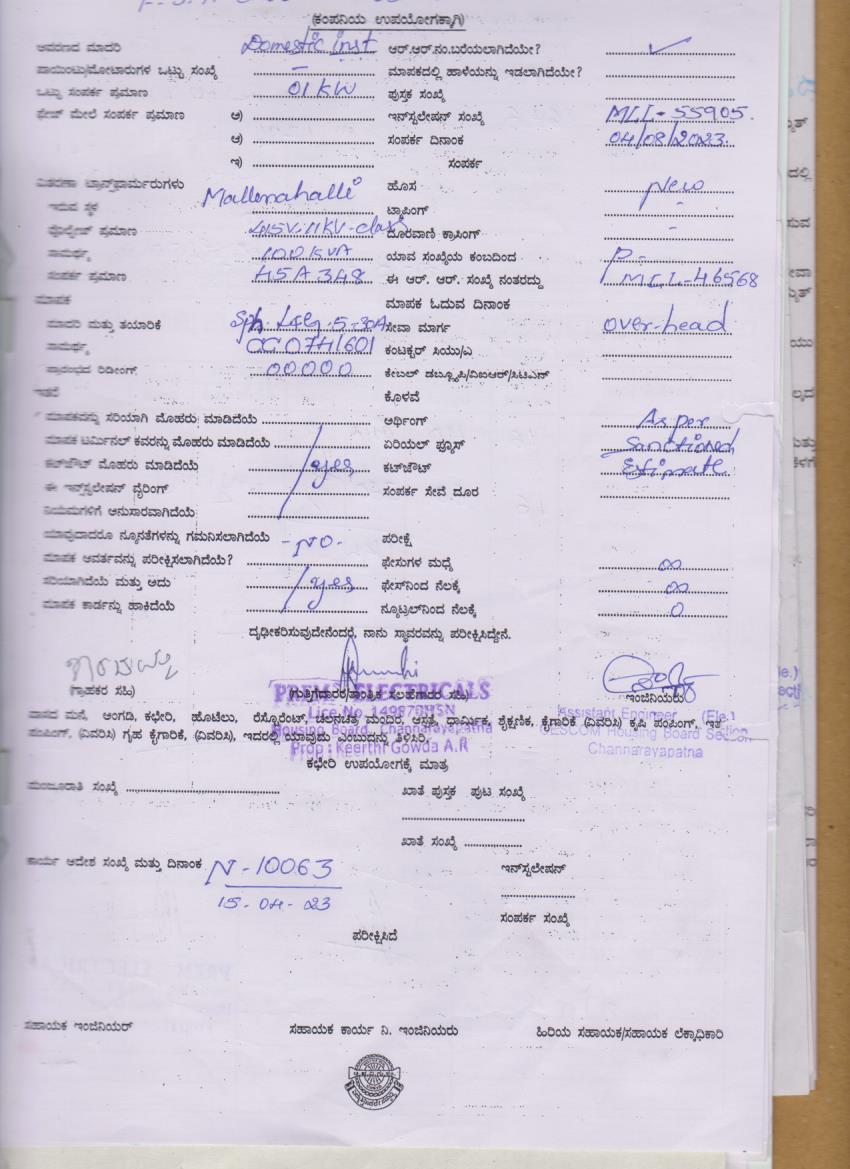 (ಕಂಪನಿಯ ಉಪಯೋಗಕ್ಕಾಗಿ)
ಆವರಣದ ಮಾದರಿ Domestic inst ಆರ್.ಆರ್.ನಂ.ಬರೆಯಲಾಗಿದೆಯೇ? ✓
ಪಾಯಿಂಟ್ಸು/ಮೋಟಾರುಗಳ ಒಟ್ಟು ಸಂಖ್ಯೆ - ಮಾಪಕದಲ್ಲಿ ಹಾಳೆಯನ್ನು ಇಡಲಾಗಿದೆಯೇ?
ಒಟ್ಟು ಸಂಪರ್ಕ ಪ್ರಮಾಣ 01 KW ಪುಸ್ತಕ ಸಂಖ್ಯೆ
ಫೇಜ್ ಮೇಲೆ ಸಂಪರ್ಕ ಪ್ರಮಾಣ ಅ) ಇನ್‌ಸ್ಟಲೇಷನ್ ಸಂಖ್ಯೆ MLL-55905.
ಆ) ಸಂಪರ್ಕ ದಿನಾಂಕ 04/08/2023.
ಇ) ಸಂಪರ್ಕ
ವಿತರಣಾ ಟ್ರಾನ್ಸ್‌ಫಾರ್ಮರುಗಳು Mallenahalli ಹೊಸ New
ಇರುವ ಸ್ಥಳ ಟ್ಯಾಪಿಂಗ್ -
ವೋಲ್ಟೇಜ್ ಪ್ರಮಾಣ 415V-11KV-class ದೂರವಾಣಿ ಕ್ರಾಸಿಂಗ್ -
ಸಾಮರ್ಥ್ಯ 100 KVA ಯಾವ ಸಂಖ್ಯೆಯ ಕಂಬದಿಂದ P-
ಸಂಪರ್ಕ ಪ್ರಮಾಣ HSA 348 ಈ ಆರ್. ಆರ್. ಸಂಖ್ಯೆ ನಂತರದ್ದು MLL-46568
ಮಾಪಕ ಮಾಪಕ ಓದುವ ದಿನಾಂಕ
ಮಾದರಿ ಮತ್ತು ತಯಾರಿಕೆ Sph. L&G. 5-30A ಸೇವಾ ಮಾರ್ಗ over-head
ಸಾಮರ್ಥ್ಯ ಕಂಟಕ್ಟರ್ ಸಿಯು/ಎ
ಪ್ರಾರಂಭದ ರಿಡೀಂಗ್ 00000 ಕೇಬಲ್ ಡಬ್ಲ್ಯೂಪಿ/ವಿಐಆರ್/ಸಿಟಿಎಸ್
ಇತರೆ ಕೊಳವೆ
ಮಾಪಕವನ್ನು ಸರಿಯಾಗಿ ಮೊಹರು ಮಾಡಿದೆಯೆ ಅರ್ಥಿಂಗ್ As per
ಮಾಪಕ ಟರ್ಮಿನಲ್ ಕವರನ್ನು ಮೊಹರು ಮಾಡಿದೆಯೆ ಏರಿಯಲ್ ಫ್ಯೂಸ್ Sanctioned
ಕಟ್‌ಔಟ್ ಮೊಹರು ಮಾಡಿದೆಯೆ yes ಕಟ್‌ಔಟ್ Estimate
ಈ ಇನ್‌ಸ್ಟಲೇಷನ್ ವೈರಿಂಗ್ ಸಂಪರ್ಕ ಸೇವೆ ದೂರ
ನಿಯಮಗಳಿಗೆ ಅನುಸಾರವಾಗಿದೆಯೆ
ಯಾವುದಾದರೂ ನ್ಯೂನತೆಗಳನ್ನು ಗಮನಿಸಲಾಗಿದೆಯೆ -NO- ಪರೀಕ್ಷೆ
ಮಾಪಕ ಆವರ್ತವನ್ನು ಪರೀಕ್ಷಿಸಲಾಗಿದೆಯೆ? ಫೇಸುಗಳ ಮಧ್ಯೆ ∞
ಸರಿಯಾಗಿದೆಯೆ ಮತ್ತು ಅದು yes ಫೇಸ್‌ನಿಂದ ನೆಲಕ್ಕೆ ∞
ಮಾಪಕ ಕಾರ್ಡನ್ನು ಹಾಕಿದೆಯೆ ನ್ಯೂಟ್ರಲ್‌ನಿಂದ ನೆಲಕ್ಕೆ 0
ದೃಢೀಕರಿಸುವುದೇನೆಂದರೆ, ನಾನು ಸ್ಥಾವರವನ್ನು ಪರೀಕ್ಷಿಸಿದ್ದೇನೆ.
(ಗ್ರಾಹಕರ ಸಹಿ) (ಗುತ್ತಿಗೆದಾರರ/ತಾಂತ್ರಿಕ ಸಲಹೆಗಾರರ ಸಹಿ) ಇಂಜಿನಿಯರು
PREMA ELECTRICALS
Lice No 149870HSN
Housing Board, Channarayapatna
Prop : Keerthi Gowda A.R
Assistant Engineer (Ele.)
CESCOM Housing Board Section
Channarayapatna
ವಾಸದ ಮನೆ, ಅಂಗಡಿ, ಕಛೇರಿ, ಹೊಟೆಲು, ರೆಸ್ಟೋರೆಂಟ್, ಚಲನಚಿತ್ರ ಮಂದಿರ, ಆಸ್ಪತ್ರೆ, ಧಾರ್ಮಿಕ, ಶೈಕ್ಷಣಿಕ, ಕೈಗಾರಿಕೆ (ವಿವರಿಸಿ) ಕೃಷಿ ಪಂಪಿಂಗ್, ಇತರೆ
ಪಂಪಿಂಗ್, (ವಿವರಿಸಿ) ಗೃಹ ಕೈಗಾರಿಕೆ, (ವಿವರಿಸಿ), ಇದರಲ್ಲಿ ಯಾವುದು ಎಂಬುದನ್ನು ತಿಳಿಸಿರಿ.
ಕಛೇರಿ ಉಪಯೋಗಕ್ಕೆ ಮಾತ್ರ
ಮಂಜೂರಾತಿ ಸಂಖ್ಯೆ ಖಾತೆ ಪುಸ್ತಕ ಪುಟ ಸಂಖ್ಯೆ
ಖಾತೆ ಸಂಖ್ಯೆ
ಕಾರ್ಯ ಆದೇಶ ಸಂಖ್ಯೆ ಮತ್ತು ದಿನಾಂಕ N-10063 ಇನ್‌ಸ್ಟಲೇಷನ್
15-04-23
ಸಂಪರ್ಕ ಸಂಖ್ಯೆ
ಪರೀಕ್ಷಿಸಿದೆ
ಸಹಾಯಕ ಇಂಜಿನಿಯರ್ ಸಹಾಯಕ ಕಾರ್ಯ ನಿ. ಇಂಜಿನಿಯರು ಹಿರಿಯ ಸಹಾಯಕ/ಸಹಾಯಕ ಲೆಕ್ಕಾಧಿಕಾರಿ